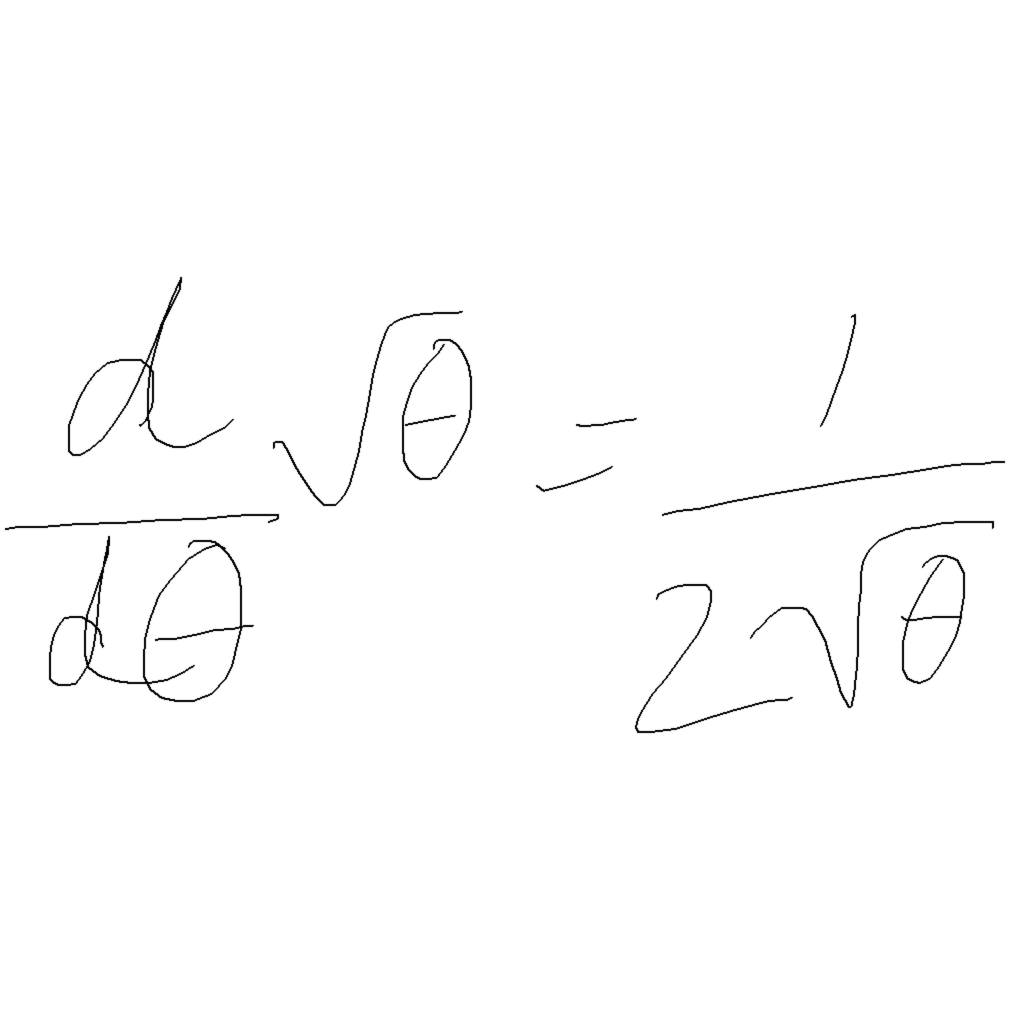 \frac{d}{d\theta}\sqrt{\theta}=\frac{1}{2\sqrt{\theta}}